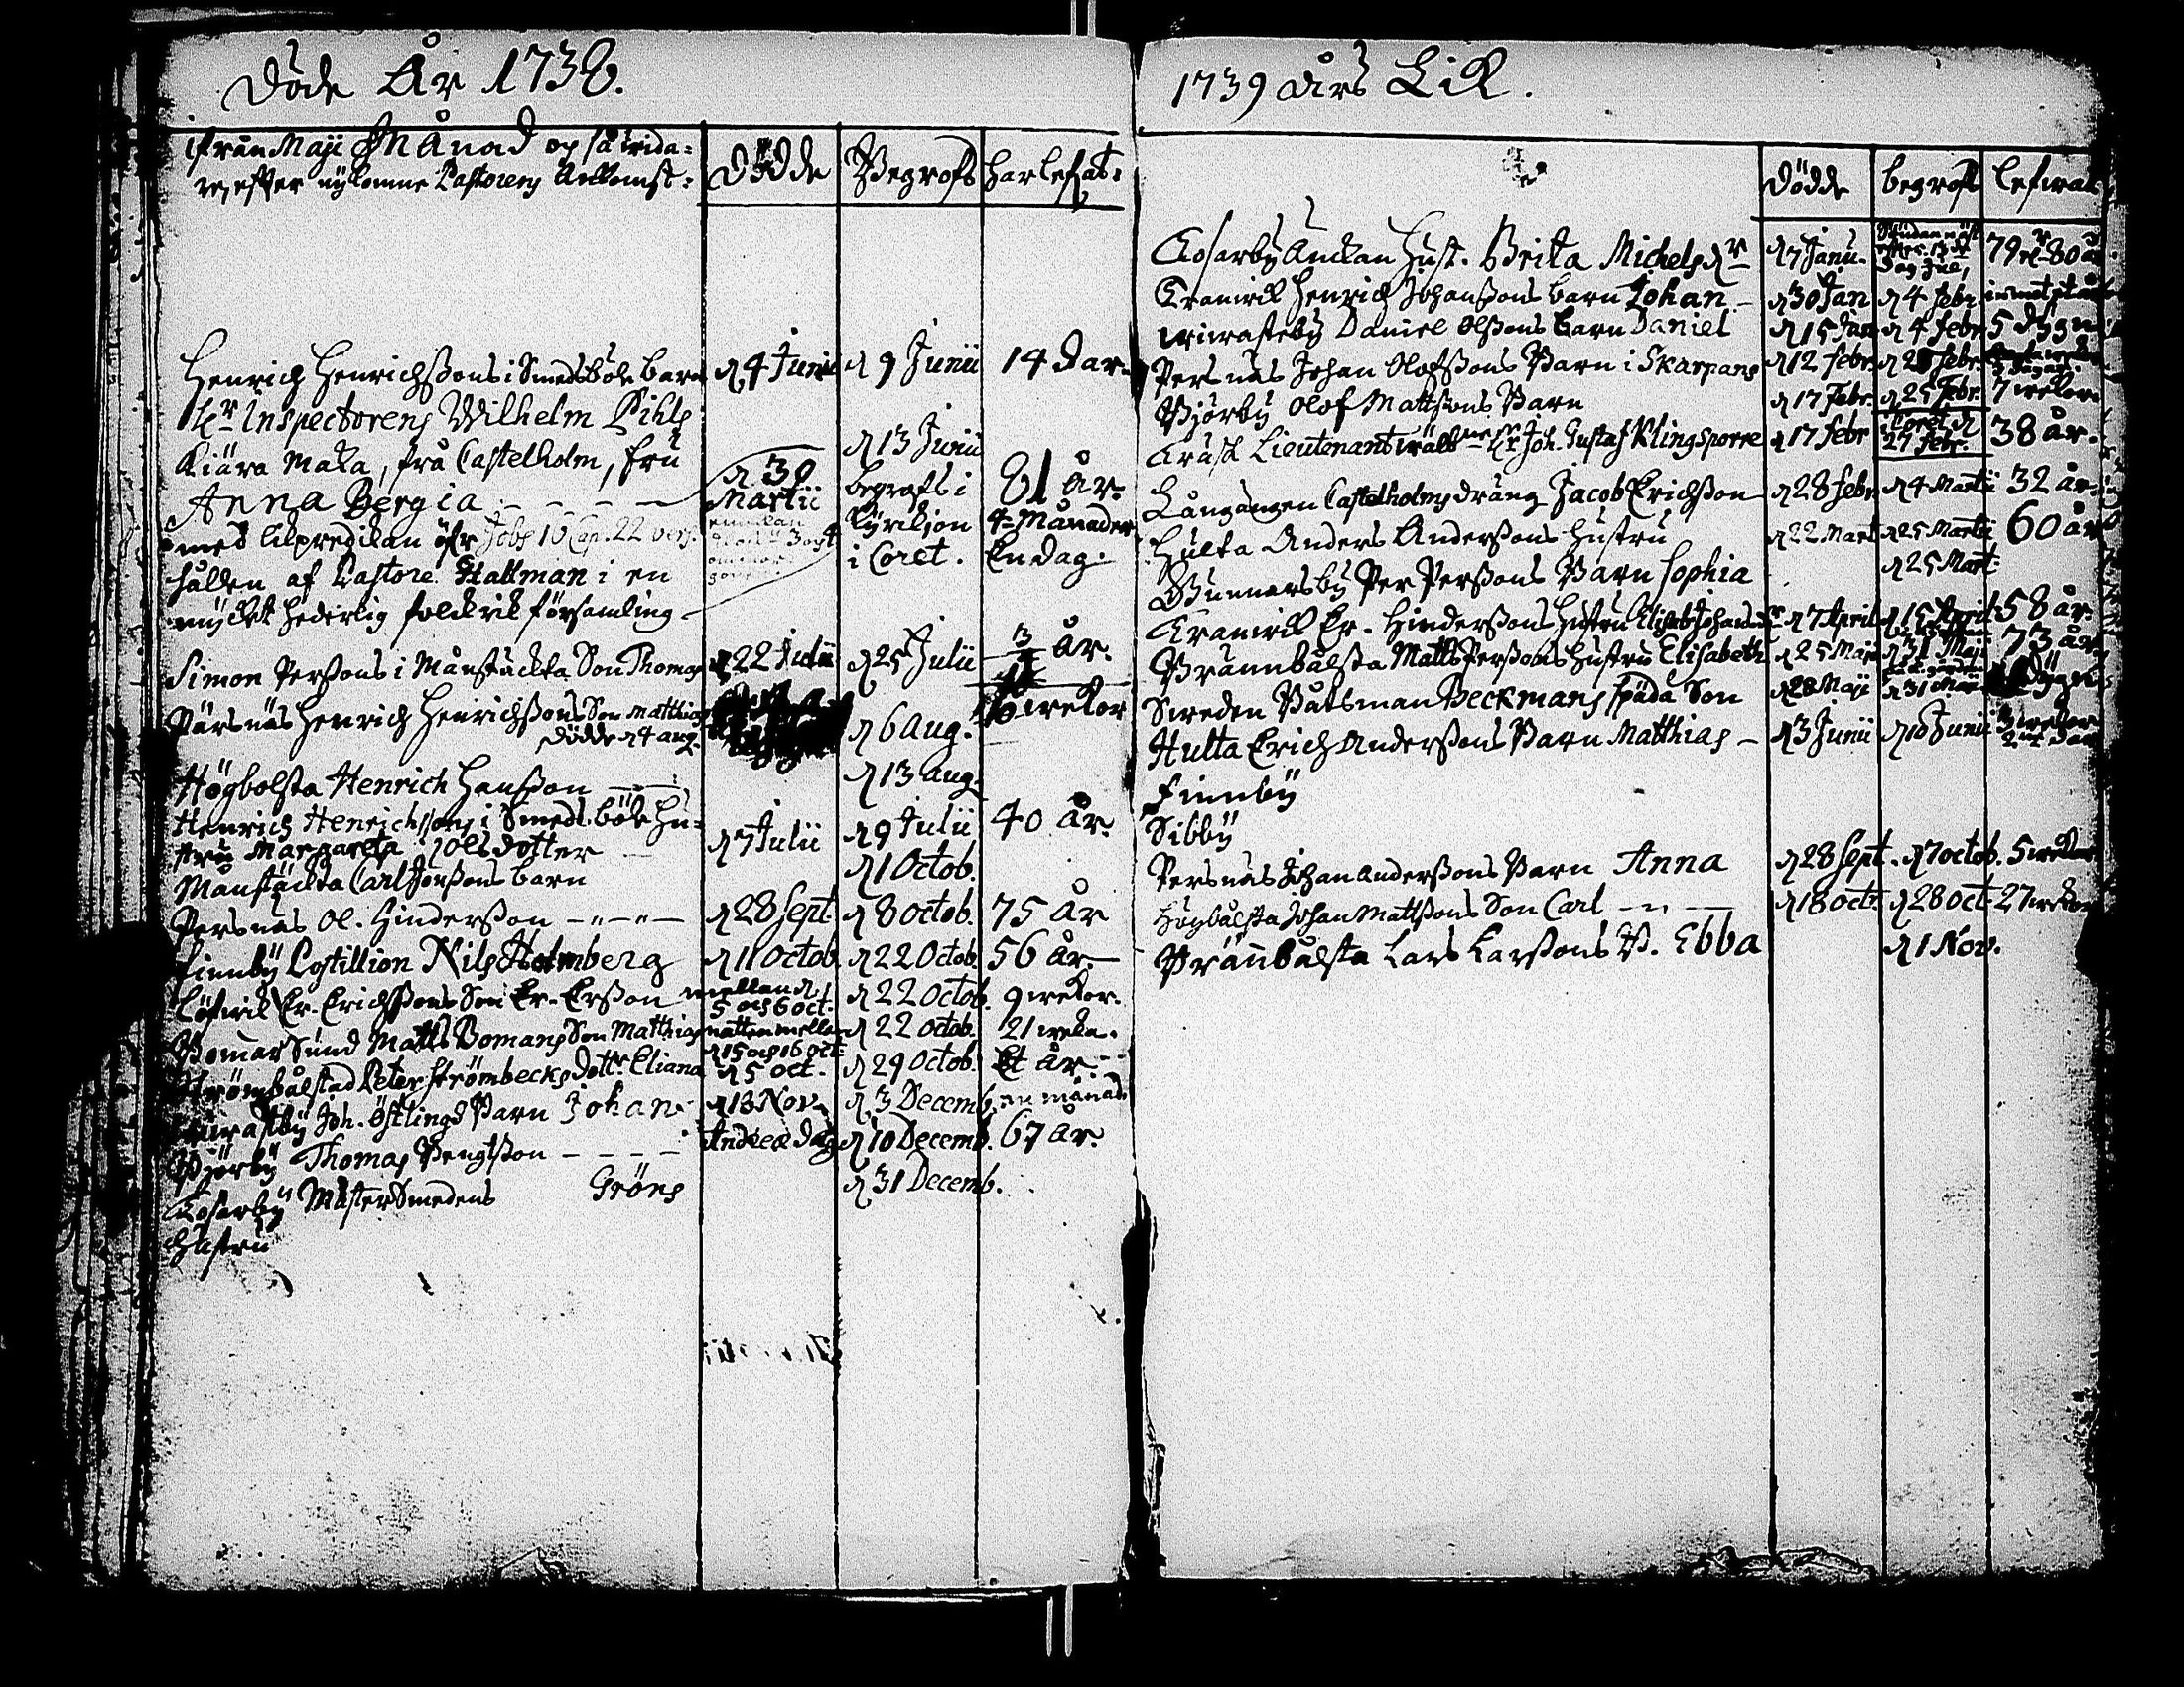 Döde År 1738.
ifrån Maji Månad og så wida=
re, efter nykomne Pastorens Ankomst:
Dödde Begrofs har lefwat:
Henrich Henrichssons i Smedsböle barn d 4 Junii d 9 Junii 14 Dar.
Hr Inspectorens Wilhelm Pihls
Kiära Maka, frå Castelholm, Fru
Anna Bergia d 30 Martii d 13 Junii begrofs i Kyrkjon i Coret. 81 år. 4 Månader En dag.
med likpredikan öfr Jobs 16 Cap. 22 vers.
hållen af Pastore Hallman i en
mycket hederlig folckrik församling
Simon Perssons i Månstäckta Son Thomas d 22 Julii d 25 Julii år.
Pärsnäs Henrich Henrichssons Son Matthias d 6 aug. wekor
dödde d 4 aug.
Högbolsta Henrich Hansson d 13 aug.
Henrich Henrichssons i Smedsböle Hu=
stru Margareta Olsdotter d 7 Julii d 9 Julii 40 År.
Månstäckta Carl Jonssons barn d 1 Octob.
Persnäs Ol. Hindersson d 28 Sept d 8 Octob. 75 År
Finnby Postillion Nils Holmberg d 11 Octob d 22 Octob 56 År
Löfwik Er. Erichssons Son Er. Ersson mellan d 5 och 6 oct. d 22 octob. 9 wekor.
Bomarsund Matts Bomans Son Matthias natten mellan d 15 och 16 oct d 22 octob. 21 weka.
Strömbålstad Peter Strömbecks Dottr Eliana d 5 oct. d 29 Octob. Et år
Joh. Östlings Barn Johan d 18 Nov. d 3 Decemb. en månad
Bjärby Thomas Bengtsson Andreæ dag d 10 Decemb. 67 år.
Kosarby Mästersmedens Gröns d 31 Decemb.
Hustru
1739 års Lik.
Dödde begrofs lefwat
Kosarby Enckan Hust. Brita Michelsdr d 7 Janu. Söndan näst efter 13de Dag Jul, 79 el. 80 år
Kranwik Henrich Johanssons barn Johan d 30 Jan d 4 febr
Daniel Olssons barn Daniel d 15 Jan d 4 febr 5 dygn
Persnäs Johan Olofssons Barn i Skarpans d 12 febr. febr.
Bjärby Olof Mattssons Barn d 17 Febr. d 25 Febr. 7 wekor.
Lieutenant Hr Joh. Gustaf Klingsporre d 17 febr i Coret d 27 Febr. 38 år.
Långängen Castelholms dräng Jacob Erichsson d 28 febr d 4 Martii 32 år
Hulta Anders Anderssons Hustru d 22 Mart d 25 Martii 60 år
Gunnarsby Per Perssons Barn Sophia d 25 Mart.
Kranwik Er. Hinderssons Hustru Elisab Johansdr d 7 April d 15 April 58 år
Brännbålsta Matts Perssons Hustru Elisabeth d 25 Maji d 31 Maj 73 år
Sweden Båtsman Beckmans späda Son d 28 Maji d 31 Maji dygn
Hulta Erich Anderssons Barn Matthias d 3 Junii d 10 Junii 3 wekor
Finnby
Sibby
Persnäs Johan Anderssons Barn Anna d 28 Sept. d 7 octob. 5 wekor
Högbålsta Johan Mattssons Son Carl d 18 oct. d 28 oct. 27 wekor
Brännbålsta Lars Larssons B. Ebba d 1 Nov.